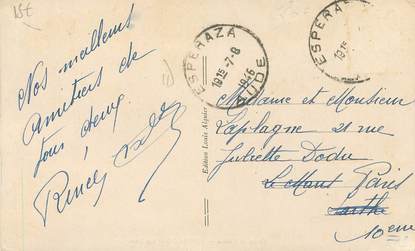 15€
ESPERAZA
1915-7-8
1946
AUDE
ESPERAZA
1915
Nos meilleurs
amitiés de
tous deux
Edition Louis Alquier
Madame et Monsieur
Lapilagne 21 rue
Juliette Dodu
Le Mans Paris
Sarthe
10em